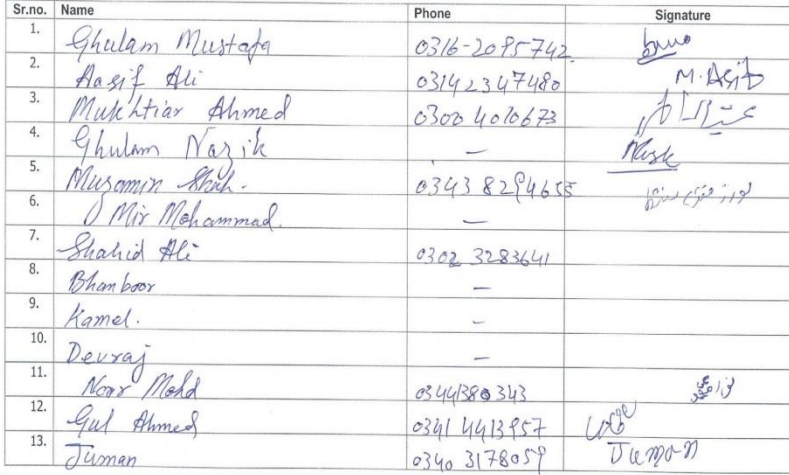 Sr.no. Name Phone Signature
1. Ghulam Mustafa 0316-2095742
2. Aasif Ali 03142347480 M. Asif
3. Mukhtiar Ahmed 0300 4010673
4. Ghulam Nazik —
5. Muzamin Shah. 0343 8294655
6. Mir Mohammad. —
7. Shahid Ali 0302 3283641
8. Bhamboor —
9. Kamel. –
10. Devraj —
11. Noor Mohd 0344380343
12. Gul Ahmed 0341 4413957
13. Juman 0340 3178059 Juman